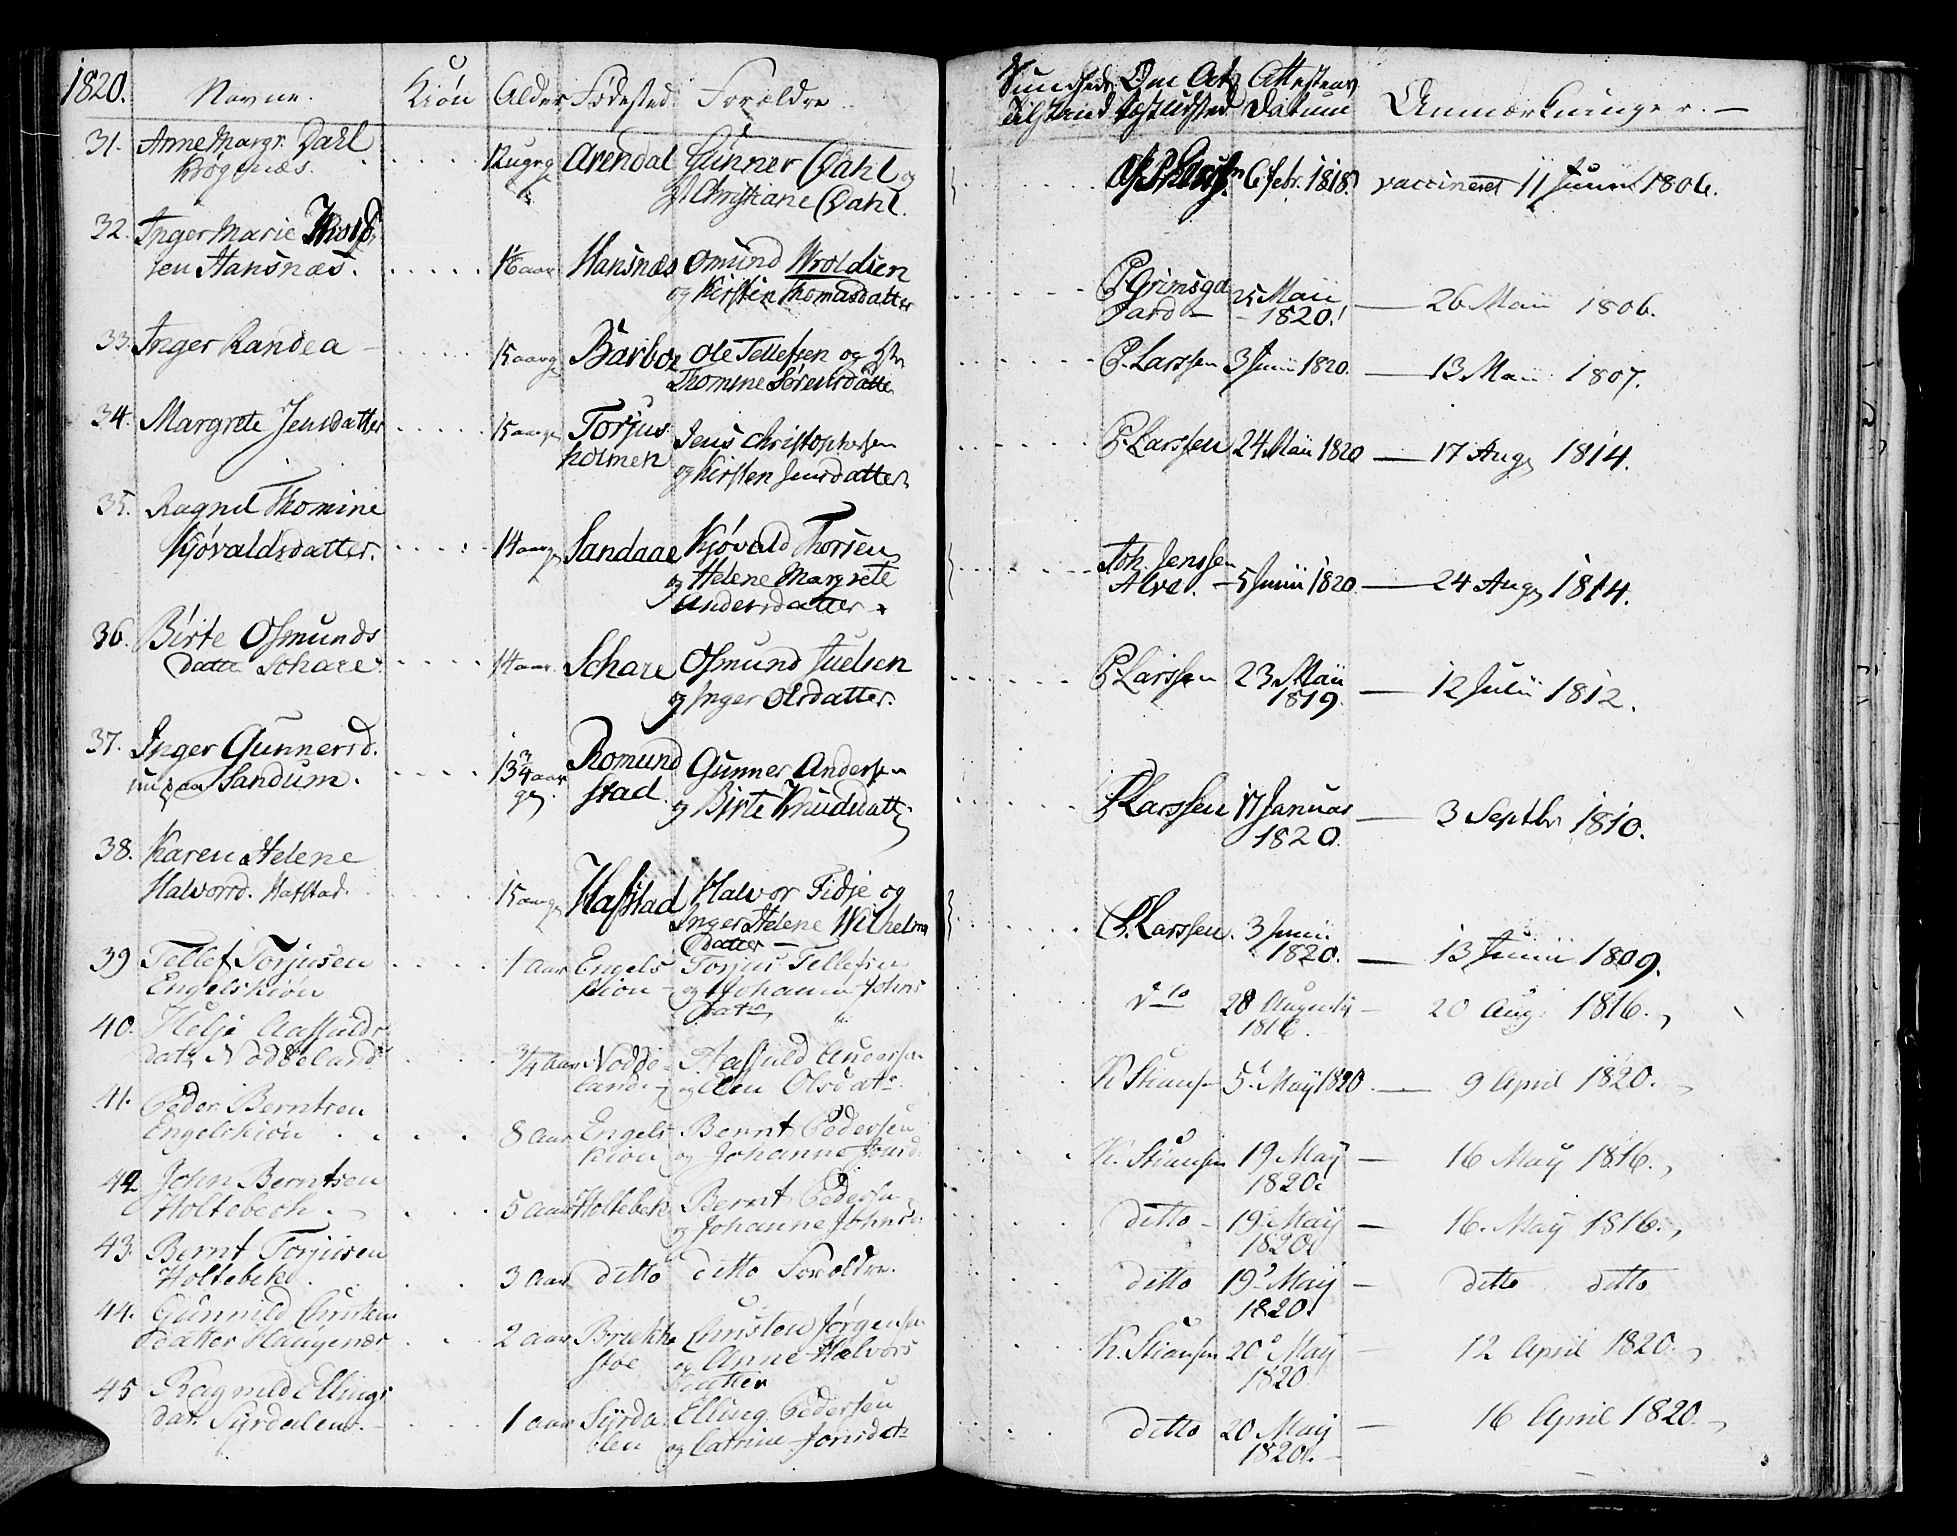 1820. Navne. Kiön Alder Födested. Forældre. Sundheds Om Att Attestens
Tilstand Datum Anmærkninger. —
31. Anne Margr. Dahl Arendal Gunner Dahl og
Christiane Dahl. 6 Febr. 1818. vaccineret 11 Junii 1806.
32. Inger Marie
sen Hansnæs. 16 aar Hansnæs Omund Wroldsen
og Kirsten Thomasdatter
P Grimsga
ard — 25 Maii
1820. — 26 Maii 1806.
33. Inger Randea — 15 aarg Barboe Ole Tellefsen og
Thomine Sörensdatter
P. Larssen 3 Junii 1820. — 13 Maii 1807.
34. Margrete Jensdatter 15 aarg Torjus
holmen Jens Christophersen
og Kirsten Jensdatter.
P. Larssen 24 Maii 1820 — 17 Aug 1814.
35. Ragnil Thomine
Kjövaldsdatter. 14 aarg Sandaae Kjövald Thorsen
og Helene Margrete
Andersdatter.
Joh. Jenssen
Alve. — 5 Junii 1820 — 24 Aug 1814.
36. Birte Osmunds
datter Schare. 14 aar. Schare Osmund Juelsen
og Inger Olsdatter.
P Larssen 23 Maii
1819. — 12 Julii 1812.
37. Inger Gunnersd.
Sandum. 13 3/4 aar
g. Romund
stad. Gunner Andersen
og Birte Knudsdatt
P Larssen 17 Januar
1820. — 3 Septbr 1810.
38. Karen Helene
Halvorsd. Hafstad. 15 aarg Hafstad Halvor Fidje og
Inger Helene Wilhelms
datter —
P. Larssen. 3 Junii
1820. — 13 Junii 1809.
39 Tellef Torjusen
Engelskiön 1 aar Engels
kiön — Torjus Tellefsen
og Johanne Johns
Datr
dto 28 Augusty
1816. — 20 Aug: 1816.
40. Helje Aasfulds
datr Noddeland 3/4 aar Nodde
land — Aasfuld Andersen
og Elen Olsdatr.
K Stiansen 5t May 1820 — 9 April 1820.
41. Peder Berntsen
Engelskiön 8 aar Engels
kiön Bernt Pedersen
og Johanne Jonsd.
K. Stiansen 19 May
1820. — 16 May 1816.
42 John Berntsen
Holtebech. 5 aar Holtebek Bernt Pedersen
og Johanne Johnsd.
ditto — 19 May
1820. — 16. May 1816.
43. Bernt Torjusen
Holtebek. 3 aar ditto ditto Forældre.
ditto 19 May
1820. — ditto ditto
44. Gunnild Christens
datter Haugenær 2 aar Brække
stöe Christen Jörgensen
og Anne Halvors
datter
K. Stiansen 20 May
1820 — 12 April 1820.
45 Ragnild Ellings
dat. Syrdalen. — 1 aar Syrda
len Elling Pedersen
og Catrine Jonsdatr
ditto 20 May
1820. — 16 April 1820.